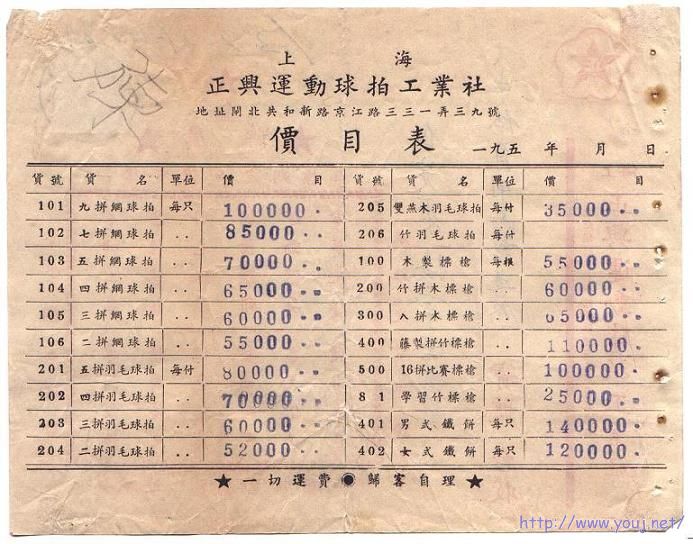 上 海
正興運動球拍工業社
地址閘北共和新路京江路三三一弄三九號
價目表 一九五 年 月 日
貨號 貨名 單位 價目 貨號 貨名 單位 價目
101 九拼網球拍 每只 100000.. 205 雙燕木羽毛球拍 每付 35000..
102 七拼網球拍 .. 85000.. 206 竹羽毛球拍 每付
103 五拼網球拍 .. 70000.. 100 木製標槍 每根 55000..
104 四拼網球拍 .. 65000.. 200 竹拼木標槍 .. 60000..
105 三拼網球拍 .. 60000.. 300 入拼木標槍 .. 65000..
106 二拼網球拍 .. 55000.. 400 藤製拼竹標槍 .. 110000..
201 五拼羽毛球拍 每付 80000.. 500 16拼比賽標槍 .. 100000.
202 四拼羽毛球拍 .. 70000.. 81 學習竹標槍 .. 25000..
203 三拼羽毛球拍 .. 60000.. 401 男式鐵餅 每只 140000.
204 二拼羽毛球拍 .. 52000.. 402 女式鐵餅 每只 120000.
★一切運費●歸客自理★
http://www.youj.net/